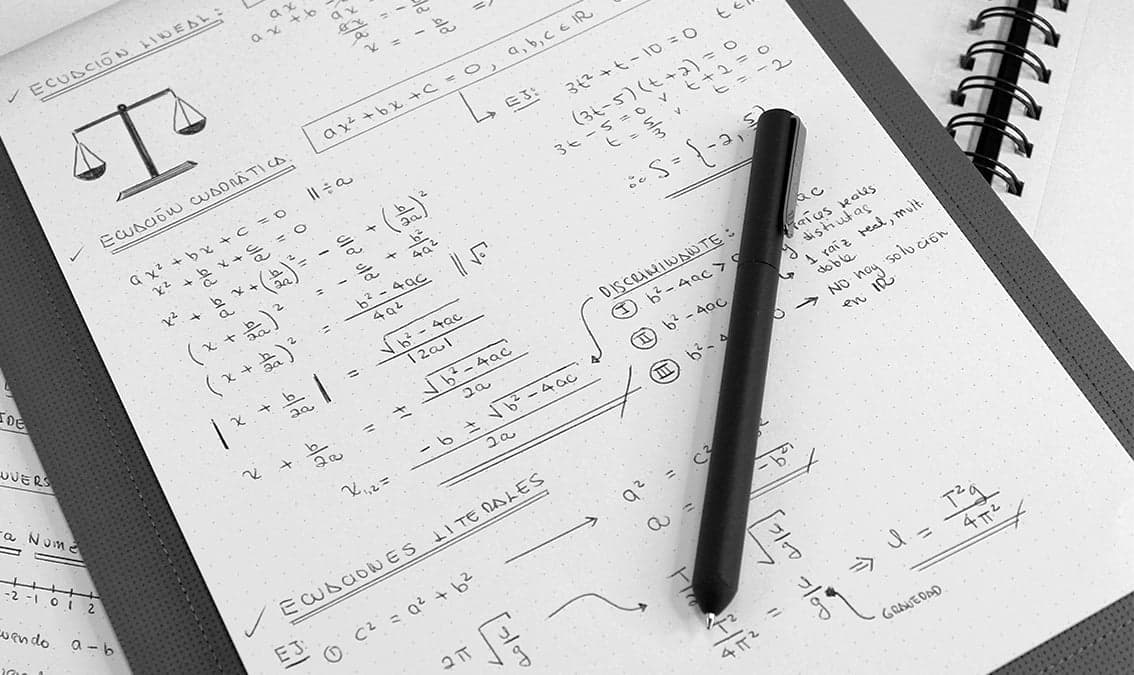 ✓ ECUACIÓN LINEAL:
ax
ax + b
ax/a = -b/a
x = -b/a
ax² + bx + c = 0, a, b, c ∈ IR
↳ EJ:
3t² + t - 10 = 0
(3t - 5)(t + 2) = 0
3t - 5 = 0 ∨ t + 2 = 0
t = 5/3 ∨ t = -2
∴ S = {-2, 5
✓ ECUACIÓN CUADRÁTICA:
ax² + bx + c = 0 || ÷a
x² + b/a x + c/a = 0
x² + b/a x + (b/2a)² = -c/a + (b/2a)²
(x + b/2a)² = -c/a + b²/4a²
(x + b/2a)² = (b² - 4ac)/4a² || √
|x + b/2a| = √(b² - 4ac)/|2a|
x + b/2a = ± √(b² - 4ac)/2a
x₁,₂ = (-b ± √(b² - 4ac))/2a
DISCRIMINANTE:
ac
Ⓘ b² - 4ac >
raíces reales
distintas
Ⓘ︎Ⓘ b² - 4ac
→ 1 raíz real, mult.
doble
ⒾⒾⒾ b² - 4
→ NO hay solución
en IR
✓ ECUACIONES LITERALES
EJ: ① c² = a² + b² →
a² = c²
a =
-b²
2π √(l/g) →
√(l/g)
T²/4π² = l/g ⇒ l = T²g/4π²
GRAVEDAD
IDE
UUERS
a Nume
-2 -1 0 1 2
uendo a-b